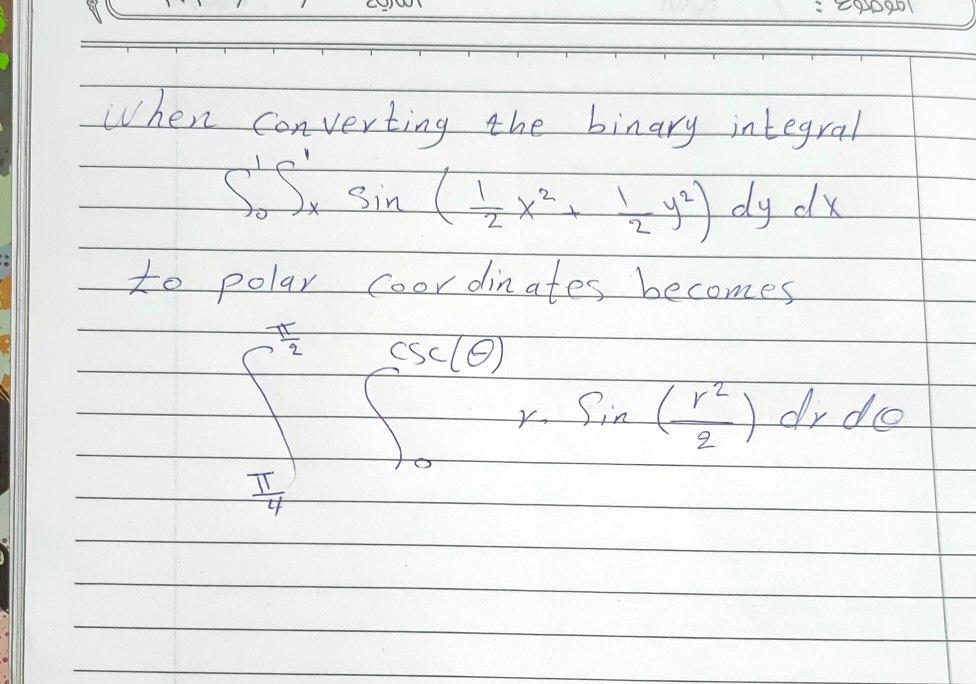 الموضوع :
When converting the binary integral
∫₀¹ ∫ₓ¹ sin ( 1/2 x² + 1/2 y² ) dy dx
to polar coordinates becomes
∫_{π/4}^{π/2} ∫₀^{csc(θ)} r. Sin ( r²/2 ) dr dθ